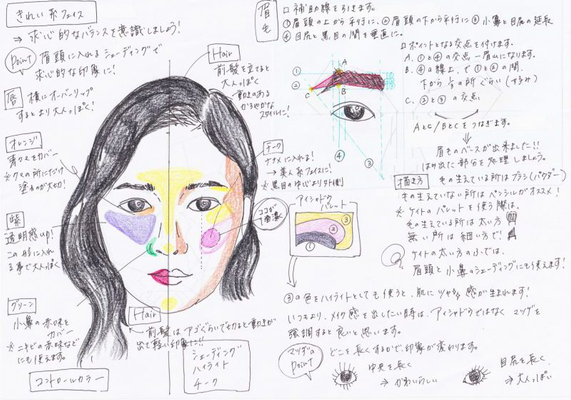 きれい系フェイス
⇒ 求心的なバランスを意識しましょう!
Point 眉頭に入れるシェーディングで
求心的な印象に!
唇 横にオーバーリング
するとより大人っぽく!
オレンジ
青クマをカバー
塗るのが大切!
紫
透明感up!
この形に入れ
る事で大人っぽく
グリーン
小鼻の赤味を
カバー
※ニキビの赤味などに
も使えます。
コントロールカラー
Hair
前髪を立てると
大人っぽく
動きのある
スタイルに!
チーク
ナナメに入れる!
⇒ 美人系フェイスに!
※黒目の中心より外側
ココが1番濃
Hair
前髪はアゴぐらいで切ると動きが
出て軽い印象に!!
シェーディング
ハイライト
チーク
眉毛
□ 補助線を引きます。
①眉頭の上から平行に、②眉頭の下から平行に ③小鼻と目尻の延長
④目尻と黒目の間を垂直に。
① ② ③ ④
A B C
□ポイントとなる交点を付けます。
A. ①と④の交点
B. ④の線上で、①と②の間、
下から1/3の所ぐらい
C. ②と③の交点
AとC / BとCをつなぎます。
眉毛のベースが出来ました!!
はみ出た部分を処理しましょう。
描き方 毛の生えている所はブラシ(パウダー)
毛の生えていない所はペンシルがオススメ!
※ケイトのパレットを使う際は、
毛の生えている所は太い方
無い所は細い方で!
ケイトの太い方の小では、
眉頭と小鼻のシェーディングにも使えます!
アイシャドウ
パレット
① ② ③
③の色をハイライトとしても使うと、肌にツヤ感が生まれます!
いつもより、メイク感を出したい時は、アイシャドウではなく マツゲを
強調すると良いと思います。
マツゲのPoint
どこを長くするかで、印象が変わります。
中央を長く
⇒ かわいらしい
目尻を長く
⇒ 大人っぽい